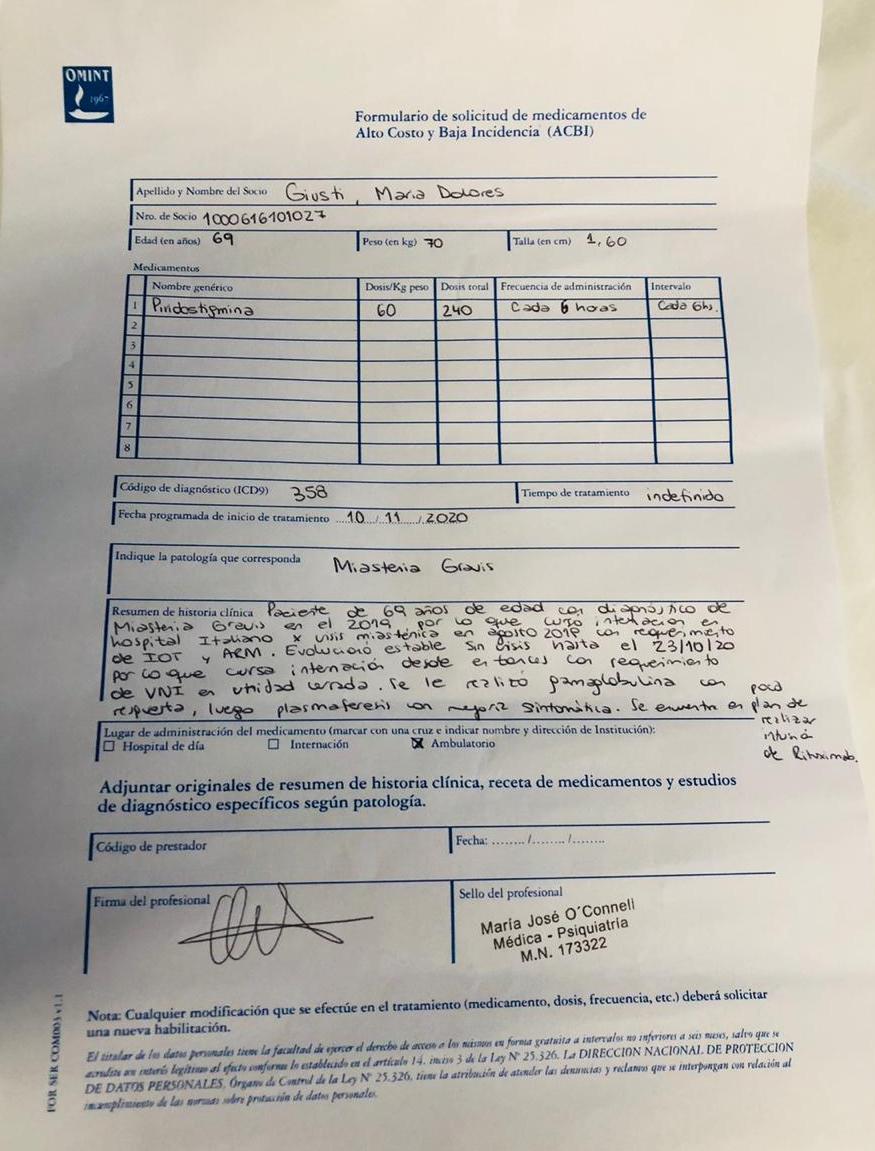 OMINT
1967
Formulario de solicitud de medicamentos de
Alto Costo y Baja Incidencia (ACBI)
Apellido y Nombre del Socio Giusti, Maria Dolores
Nro. de Socio 1000616101027
Edad (en años) 69 Peso (en kg) 70 Talla (en cm) 1,60
Medicamentos
Nombre genérico Dosis/Kg peso Dosis total Frecuencia de administración Intervalo
1 Piridostigmina 60 240 Cada 6 horas Cada 6hs.
2
3
4
5
6
7
8
Código de diagnóstico (ICD9) 358 Tiempo de tratamiento indefinido
Fecha programada de inicio de tratamiento 10/11/2020
Indique la patología que corresponda Miastenia Gravis
Resumen de historia clínica Paciente de 69 años de edad con diagnóstico de
Miastenia Gravis en el 2019, por lo que curso internacion en
hospital Italiano x crisis miasténica en agosto 2019 con requerimiento
de IOT y ARM. Evolucionó estable sin crisis hasta el 23/10/20
por lo que cursa internación desde entonces con requerimiento
de VNI en unidad cerrada. Se le realizó gamaglobulina con poca
respuesta, luego plasmaferesis con mejoria sintomática. Se encuentra en plan de
realizar
de Rituximab.
Lugar de administración del medicamento (marcar con una cruz e indicar nombre y dirección de Institución):
☐ Hospital de día ☐ Internación ☒ Ambulatorio
Adjuntar originales de resumen de historia clínica, receta de medicamentos y estudios
de diagnóstico específicos según patología.
Código de prestador Fecha: ......../......../........
Firma del profesional Sello del profesional
María José O'Connell
Médica - Psiquiatría
M.N. 173322
Nota: Cualquier modificación que se efectúe en el tratamiento (medicamento, dosis, frecuencia, etc.) deberá solicitar
una nueva habilitación.
El titular de los datos personales tiene la facultad de ejercer el derecho de acceso a los mismos en forma gratuita a intervalos no inferiores a seis meses, salvo que se
acredite un interés legítimo al efecto conforme lo establecido en el artículo 14, inciso 3 de la Ley Nº 25.326. La DIRECCION NACIONAL DE PROTECCION
DE DATOS PERSONALES, Órgano de Control de la Ley Nº 25.326, tiene la atribución de atender las denuncias y reclamos que se interpongan con relación al
incumplimiento de las normas sobre protección de datos personales.
FOR SER COM003 v1.1